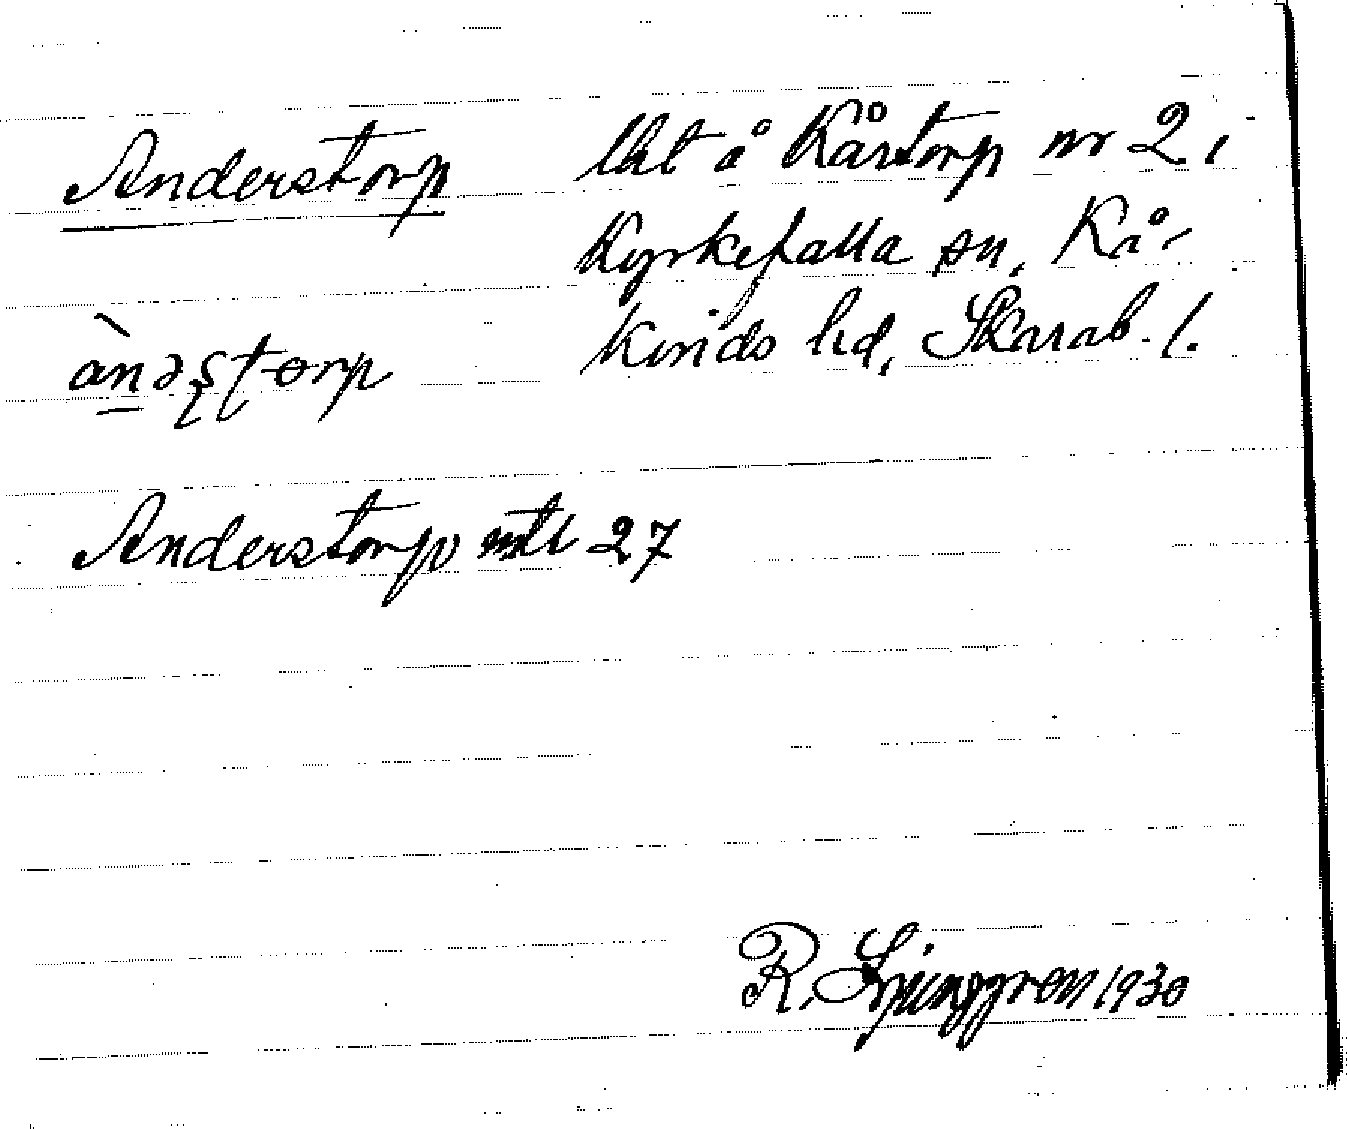 Anderstorp lht å Kårtorp nr 2 i
Kyrkefalla sn, Kå-
kinds hd, Skarab. l.
ànəʂʈorp
Anderstorp mtl 27
R. Ljunggren 1930